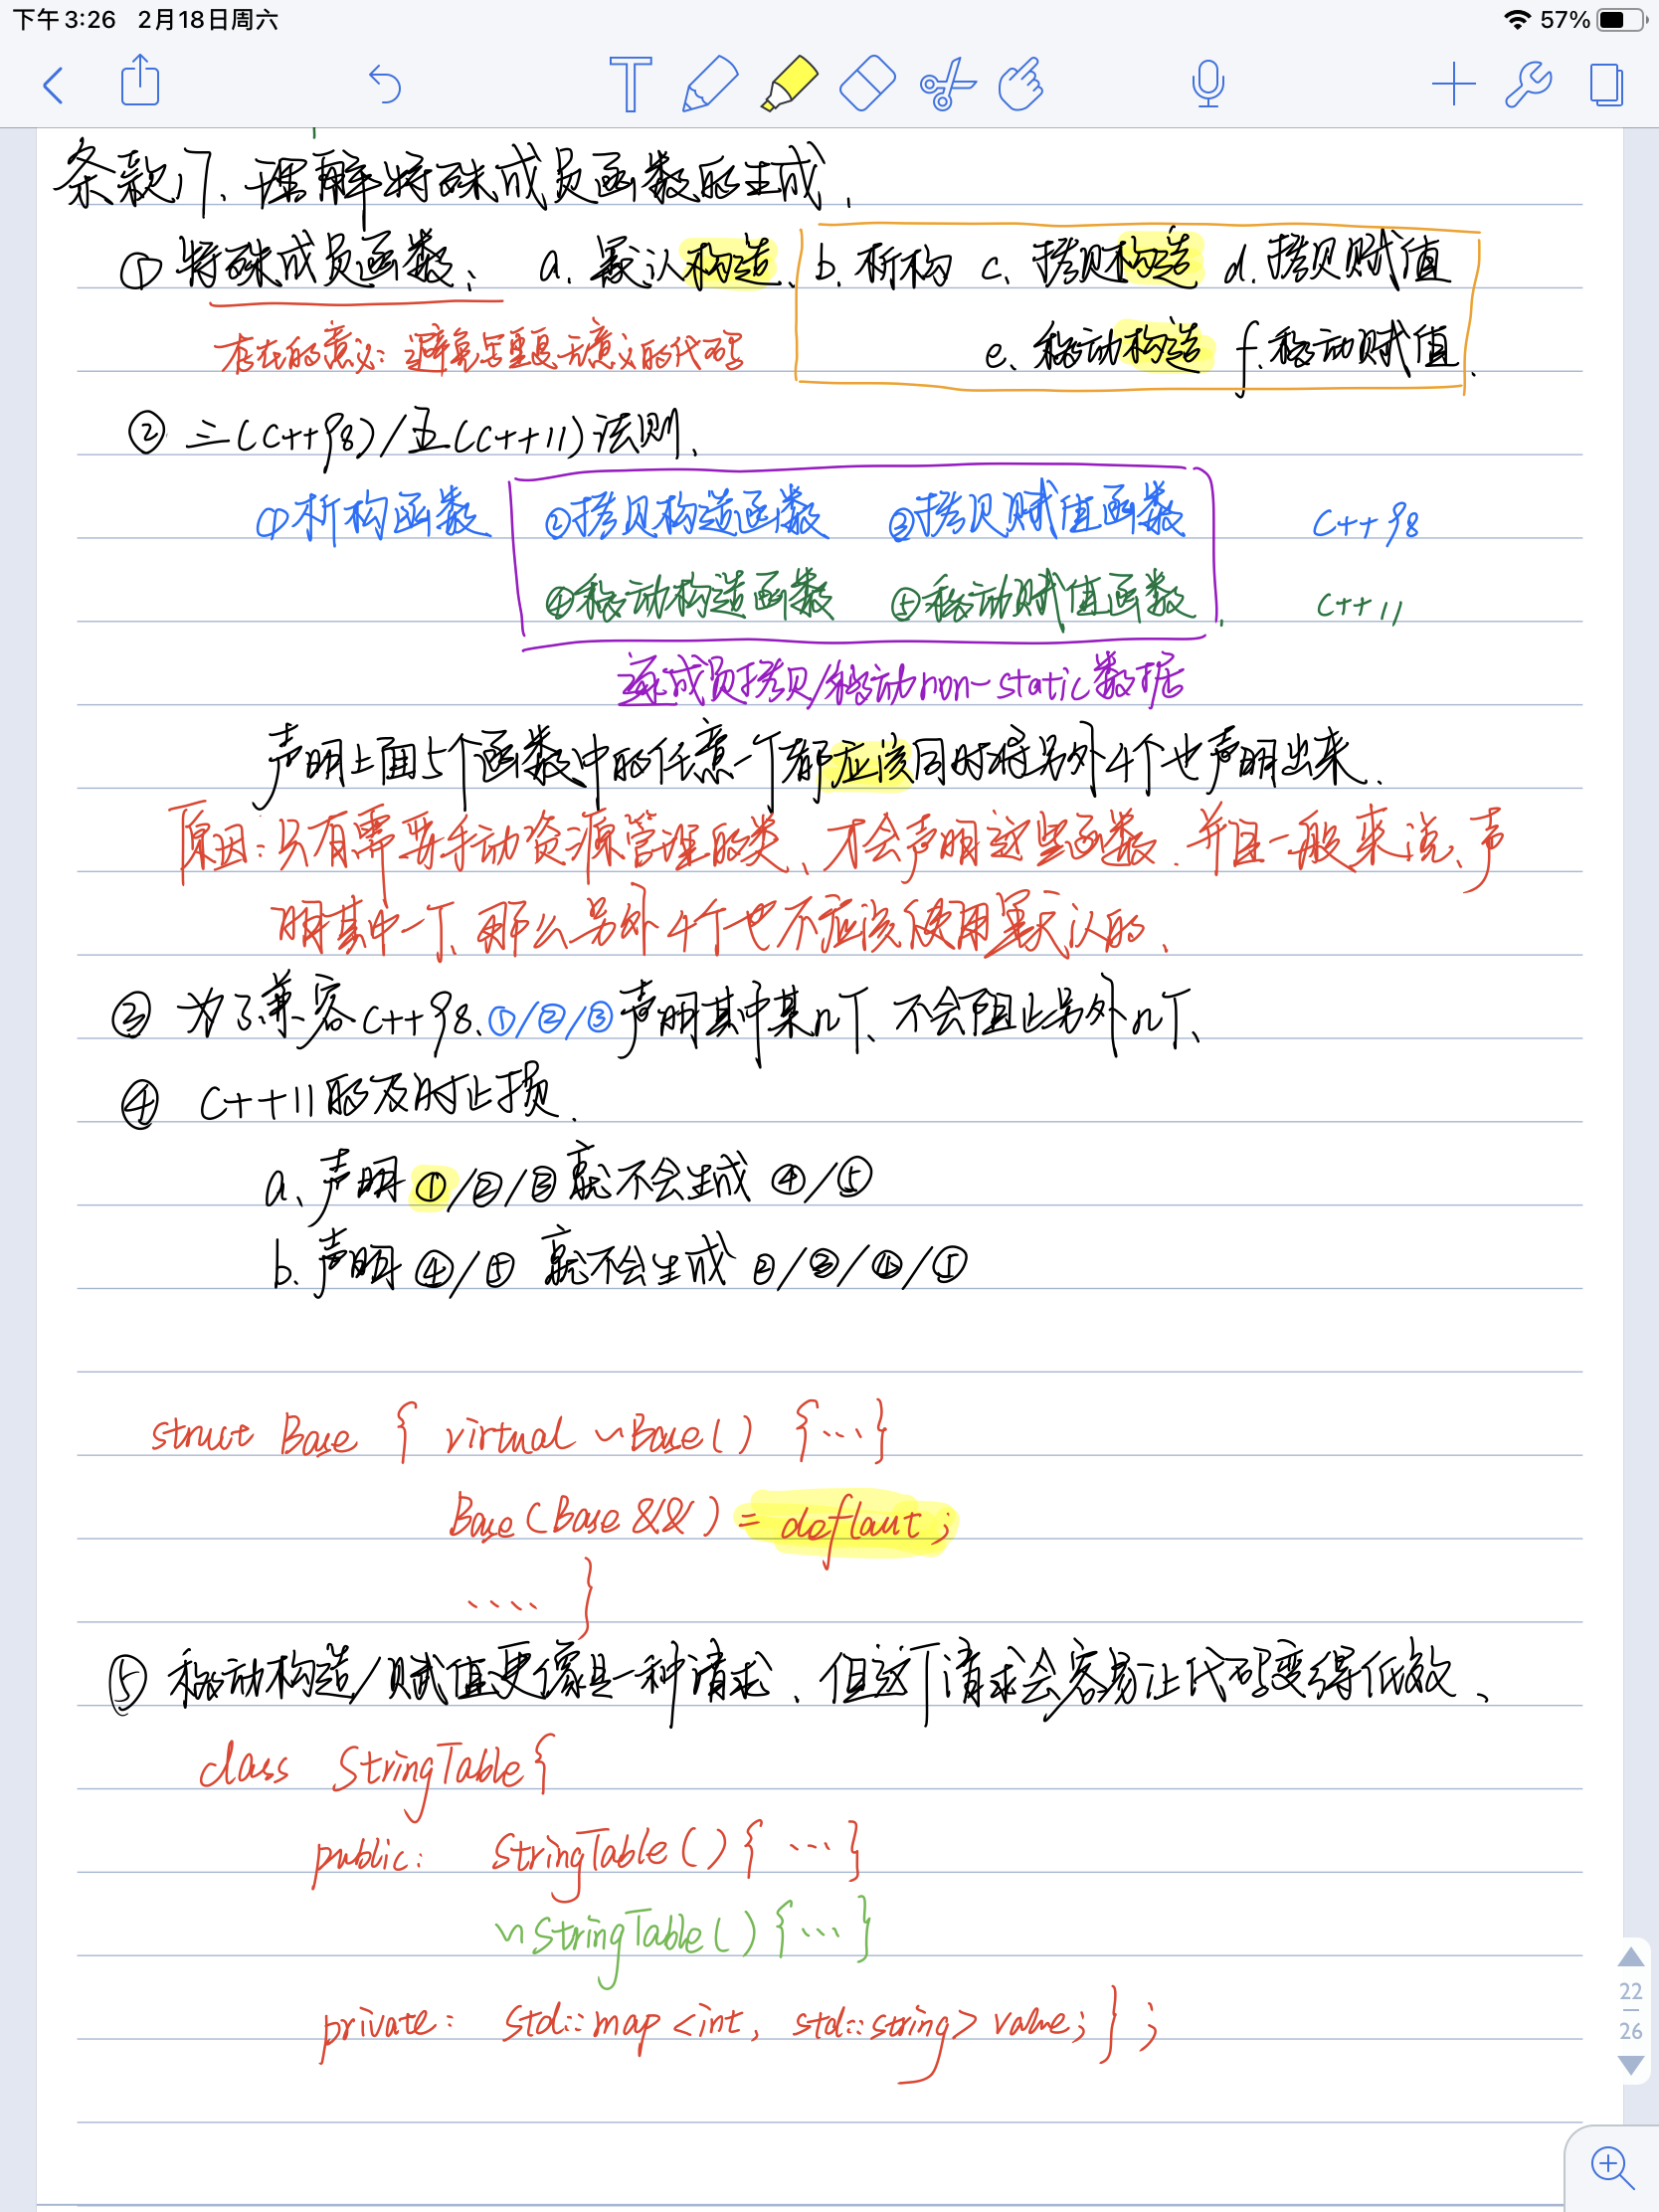 下午3:26 2月18日周六
57%
条款17、理解特殊成员函数的生成.
① 特殊成员函数、 a. 默认构造、 b. 析构 c. 拷贝构造 d. 拷贝赋值
存在的意义: 避免写重复无意义的代码 e. 移动构造 f. 移动赋值.
② 三(C++98)/五(C++11)法则.
①析构函数 ②拷贝构造函数 ③拷贝赋值函数 C++98
④移动构造函数 ⑤移动赋值函数. C++11
逐成员拷贝/移动non-static数据
声明上面5个函数中的任意一个都应该同时将另外4个也声明出来.
原因:只有需要手动资源管理的类、才会声明这些函数.并且一般来说、声
明其中一个、那么另外4个也不应该使用默认的、
③ 为了兼容C++98、①/②/③声明其中某几个、不会阻止另外几个、
④ C++11的及时止损.
a、声明①/②/③就不会生成 ④/⑤
b. 声明④/⑤ 就不会生成 ②/③/④/⑤
struct Base { virtual ~Base() {...}
Base(Base &&) = deflaut;
.... }
⑤ 移动构造/赋值更像是一种请求、但这个请求会容易让代码变得低效、
class StringTable{
public: StringTable(){ ... }
~StringTable(){...}
private: std::map<int, std::string> value; } ;
22
26